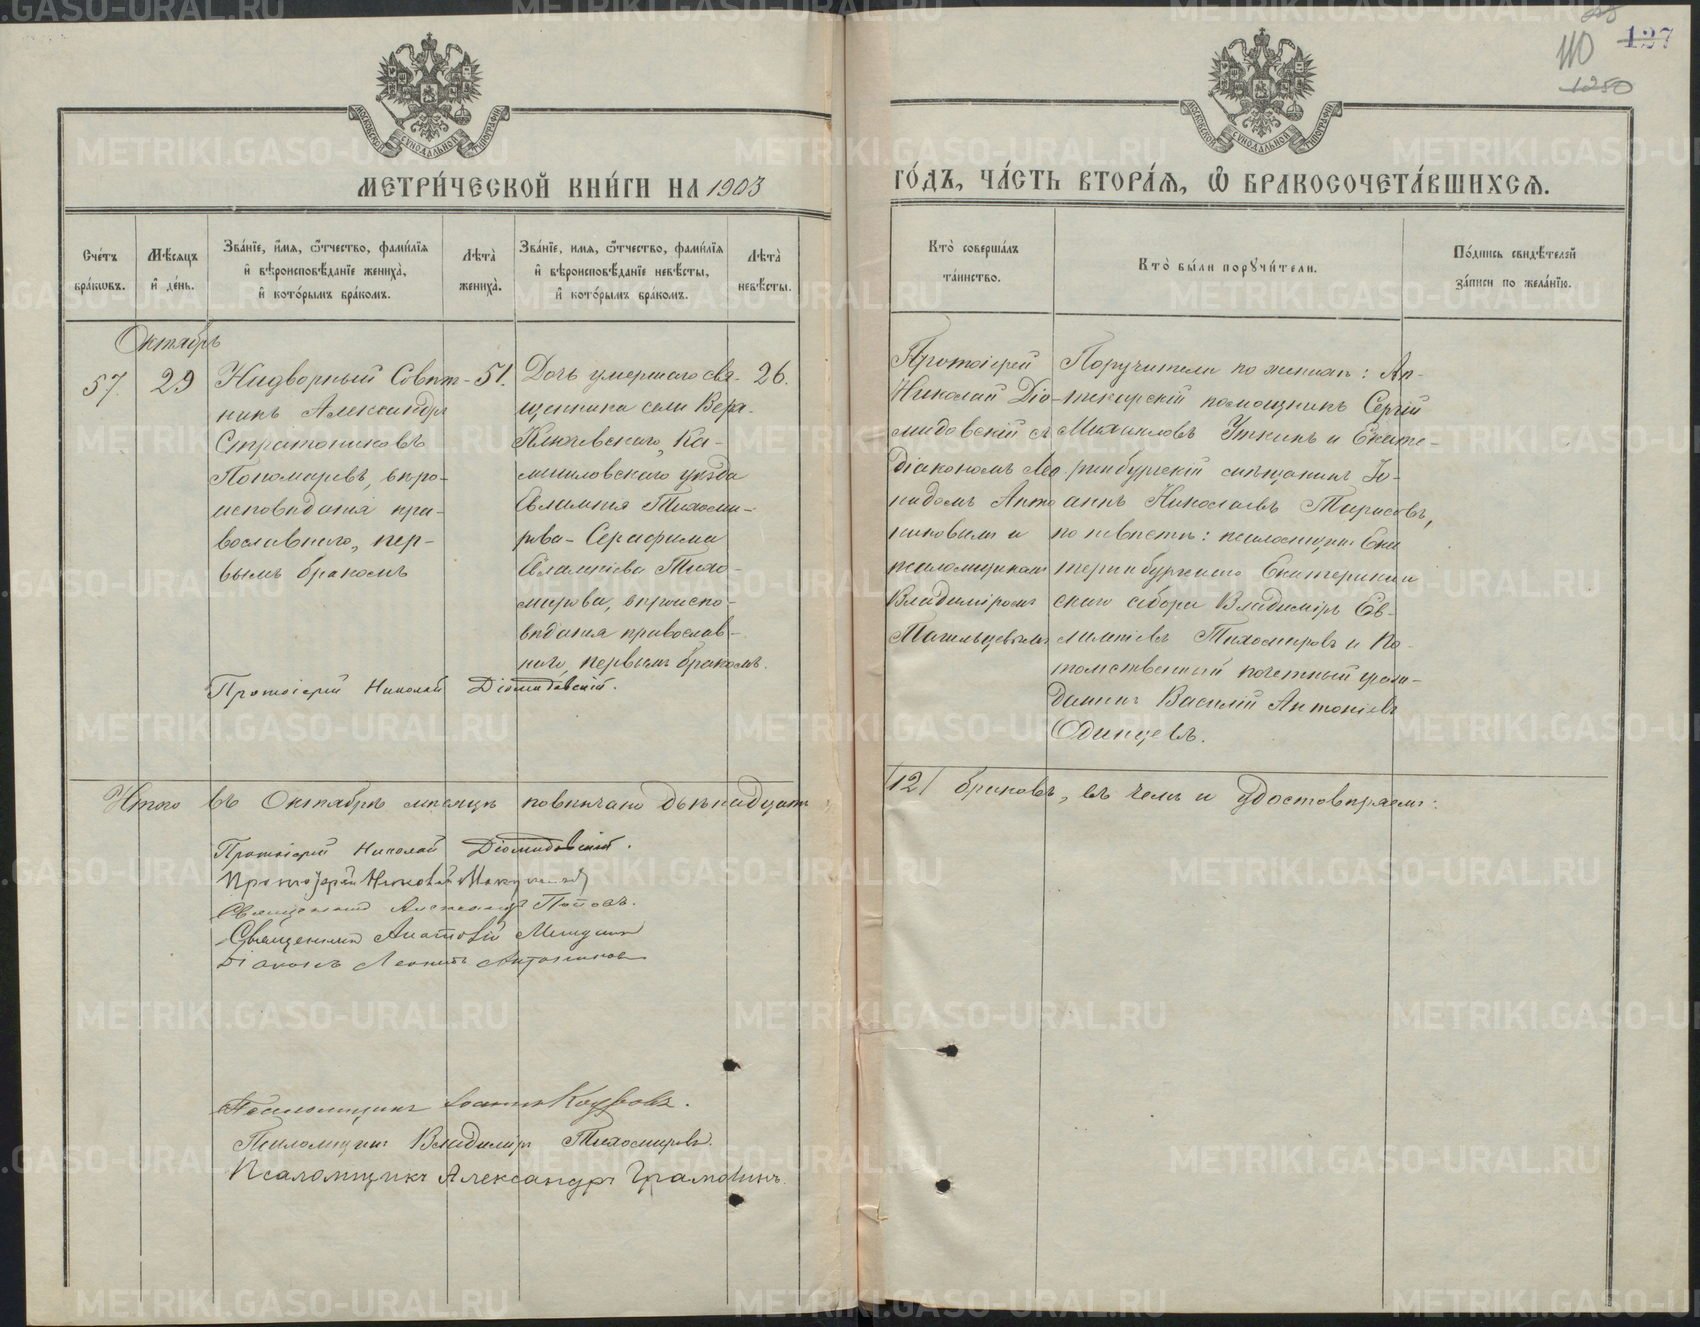 110
127
1250
МОСКОВСКОЙ СѴНОДАЛЬНОЙ ТИПОГРАФІИ
МОСКОВСКОЙ СѴНОДАЛЬНОЙ ТИПОГРАФІИ
МЕТРИ́ЧЕСКОЙ КНИ́ГИ НА 1903
ГО́ДЪ, ЧА́СТЬ ВТОРА́Я, Ѡ БРАКОСОЧЕТА́ВШИХСЯ.
Сче́тъ бра́ковъ.
Мѣ́сяцъ и҆ де́нь.
Зва́нїе, и҆́мя, ѻ҆́тчество, фами́лїя и҆ вѣроисповѣ́данїе жениха̀, и҆ кото́рымъ бра́комъ.
Лѣта̀ жениха̀.
Зва́нїе, имя, ѻ҆́тчество, фами́лїя и҆ вѣроисповѣ́данїе невѣ́сты, и҆ кото́рымъ бра́комъ.
Лѣта̀ невѣ́сты.
Кто̀ соверша́лъ та́инство.
Кто̀ бы́ли порꙋчи́тели.
По́дпись свидѣ́телей за́писи по жела́нїю.
Октябрь
57.
29
Надворный Совѣт-
никъ Александръ
Стратониковъ
Пономаревъ, вѣро-
исповѣданія пра-
вославнаго, пер-
вымъ бракомъ
51.
Дочь умершаго свя-
щенника села Верх-
Ключевскаго, Ка-
мышловскаго уѣзда
Евлампія Тихоми-
рова - Серафима
Евлампіева Тихо-
мирова, вѣроиспо-
вѣданія православ-
наго, первымъ бракомъ.
26.
Протоіерей Николай Діомидовскій.
Протоіерей
Николай Діо-
мидовскій съ
діакономъ Лео-
нидомъ Анто
никовымъ и
псаломщикомъ
Владиміромъ
Поручители по женихѣ: Ап-
текарскій помощникъ Сергій
Михаиловъ Уткинъ и Екате-
ринбургскій мѣщанинъ Іо-
аннъ Николаевъ
по невѣстѣ: псаломщикъ Ека
теринбургскаго Екатеринин
скаго собора Владиміръ Ев-
лампіевъ Тихомировъ и По-
томственный почетный граж-
данинъ Василій Антоніевъ
Одинцевъ.
Итого въ Октябрѣ мѣсяцѣ повѣнчано двѣнадцать
/12/ браковъ, въ чемъ и удостовѣряемъ:
Протоіерей Николай Діомидовскій.
Протоіерей
Священникъ Александръ Поповъ.
Священникъ Анатолій
Діаконъ Леонидъ
Псаломщикъ Іоаннъ
Псаломщикъ Владиміръ Тихомировъ.
Псаломщикъ Александръ Грамолинъ.
METRIKI.GASO-URAL.RU